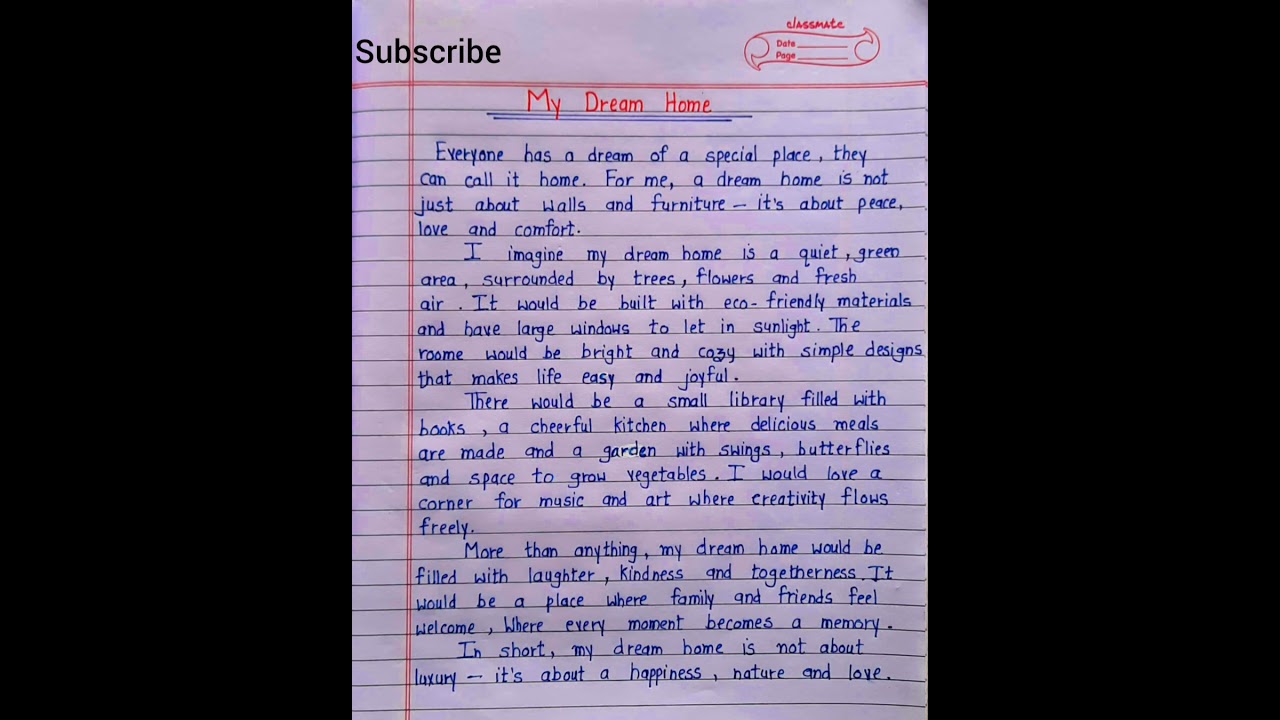 Subscribe
classmate
Date
Page
My Dream Home
Everyone has a dream of a special place, they
can call it home. For me, a dream home is not
just about walls and furniture – it's about peace,
love and comfort.
I imagine my dream home is a quiet, green
area, surrounded by trees, flowers and fresh
air. It would be built with eco-friendly materials
and have large windows to let in sunlight. The
roome would be bright and cozy with simple designs
that makes life easy and joyful.
There would be a small library filled with
books, a cheerful kitchen where delicious meals
are made and a garden with swings, butterflies
and space to grow vegetables. I would love a
corner for music and art where creativity flows
freely.
More than anything, my dream home would be
filled with laughter, kindness and togetherness. It
would be a place where family and friends feel
welcome, Where every moment becomes a memory.
In short, my dream home is not about
luxury – it's about a happiness, nature and love.